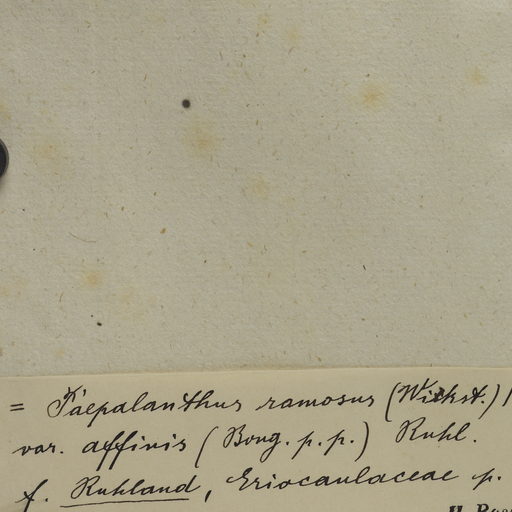 = Paepalanthus ramosus (Wikst.)
var. affinis (Bong. p.p.) Ruhl.
f. Ruhland, Eriocaulaceae p.